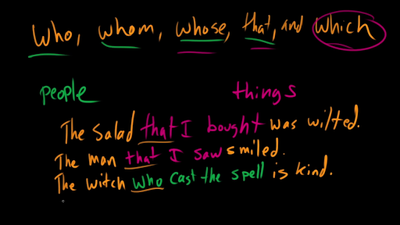 who, whom, whose, that, and which
people things
The salad that I bought was wilted.
The man that I saw smiled.
The witch who cast the spell is kind.